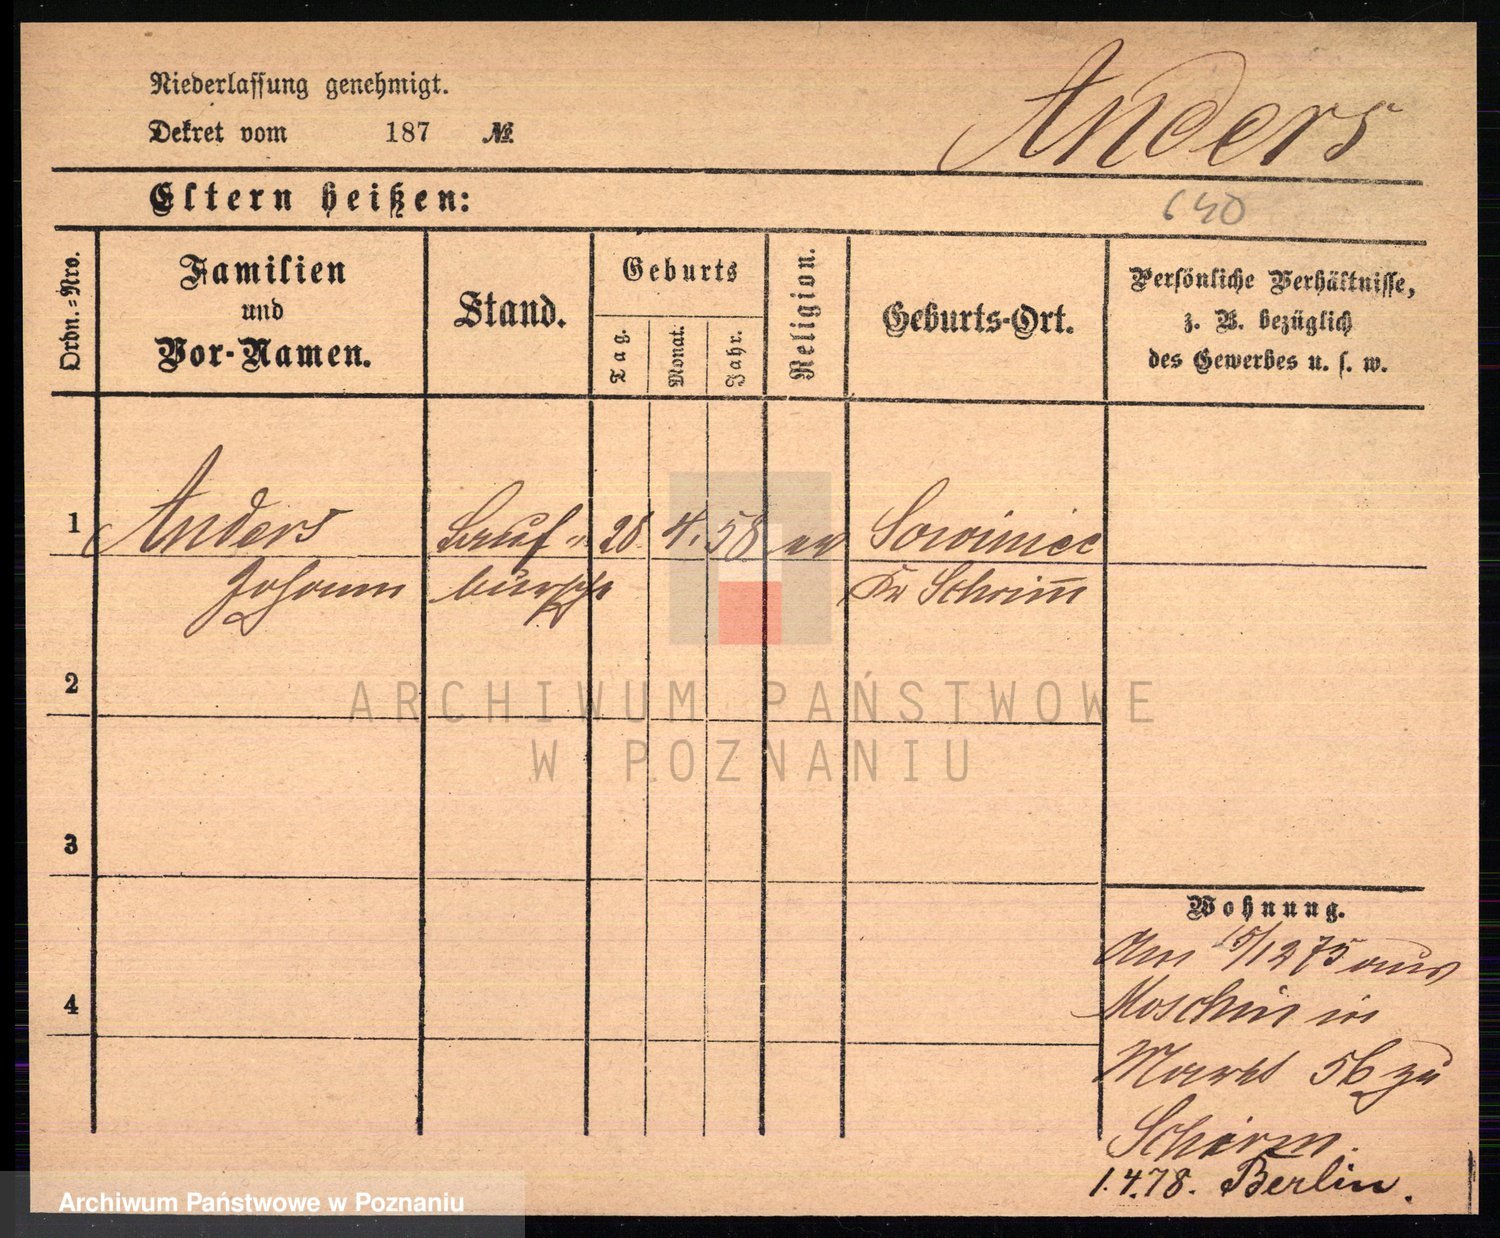 Niederlassung genehmigt.
Dekret vom 187 №
Anders
Eltern heißen:
640
Ordn.-Nro.
Familien
und
Vor-Namen.
Stand.
Geburts
Tag.
Monat.
Jahr.
Religion.
Geburts-Ort.
Persönliche Verhältnisse,
z. B. bezüglich
des Gewerbes u. s. w.
1 Anders Lauf- 28. 4. 58 ev Sowiniec
Johann bursche Kr Schrim̄
2
3
4
Wohnung.
Am 15/12 75 aus
Moschin in
Markt 56 zu
Schirm.
1.4.78. Berlin.
ARCHIWUM PAŃSTWOWE
W POZNANIU
Archiwum Państwowe w Poznaniu